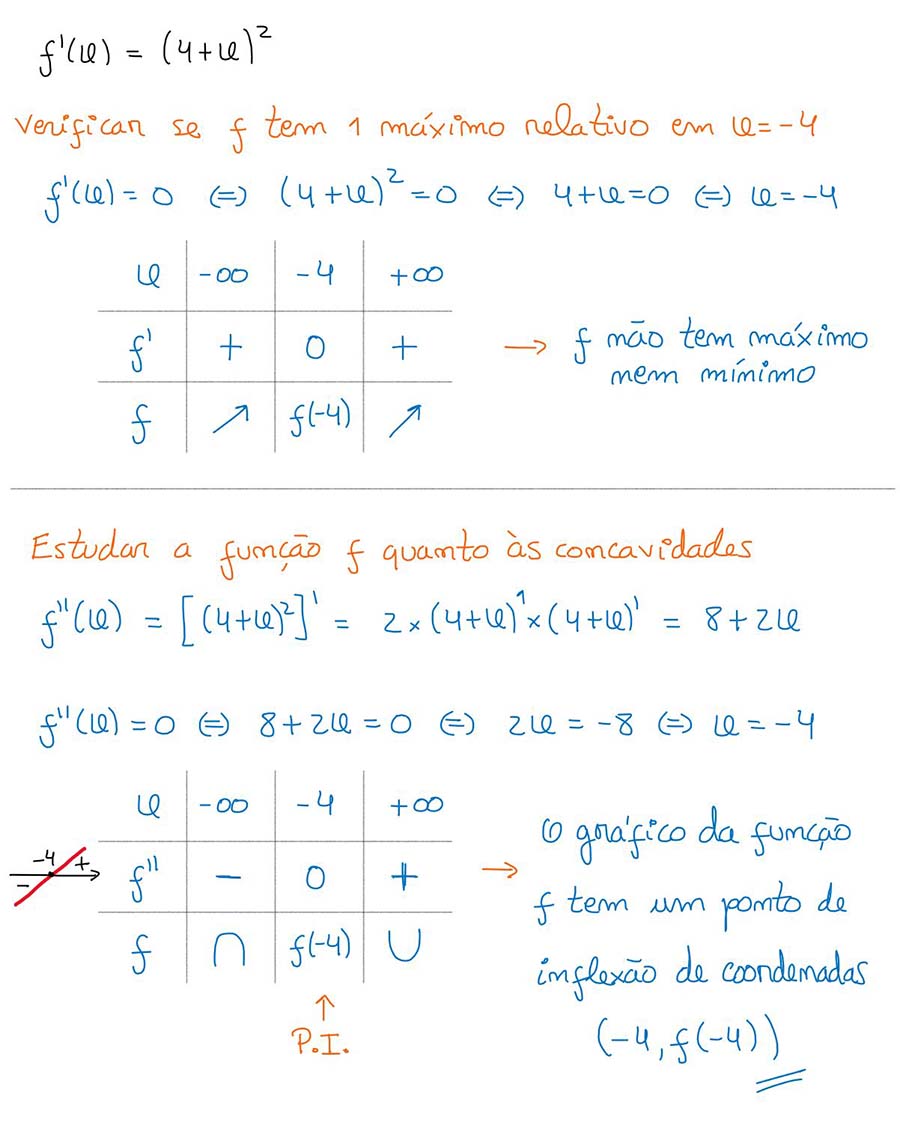 f'(x) = (4+x)²
Verificar se f tem 1 máximo relativo em x=-4
f'(x)=0 ⇔ (4+x)²=0 ⇔ 4+x=0 ⇔ x=-4
x -∞ -4 +∞
f' + 0 +
→ f não tem máximo
nem mínimo
f ↗ f(-4) ↗
Estudar a função f quanto às concavidades
f''(x) = [(4+x)²]' = 2×(4+x)¹×(4+x)' = 8+2x
f''(x)=0 ⇔ 8+2x=0 ⇔ 2x=-8 ⇔ x=-4
x -∞ -4 +∞
-4 + -
f'' - 0 +
f ∩ f(-4) ∪
↑
P.I.
→ O gráfico da função
f tem um ponto de
inflexão de coordenadas
(-4, f(-4))